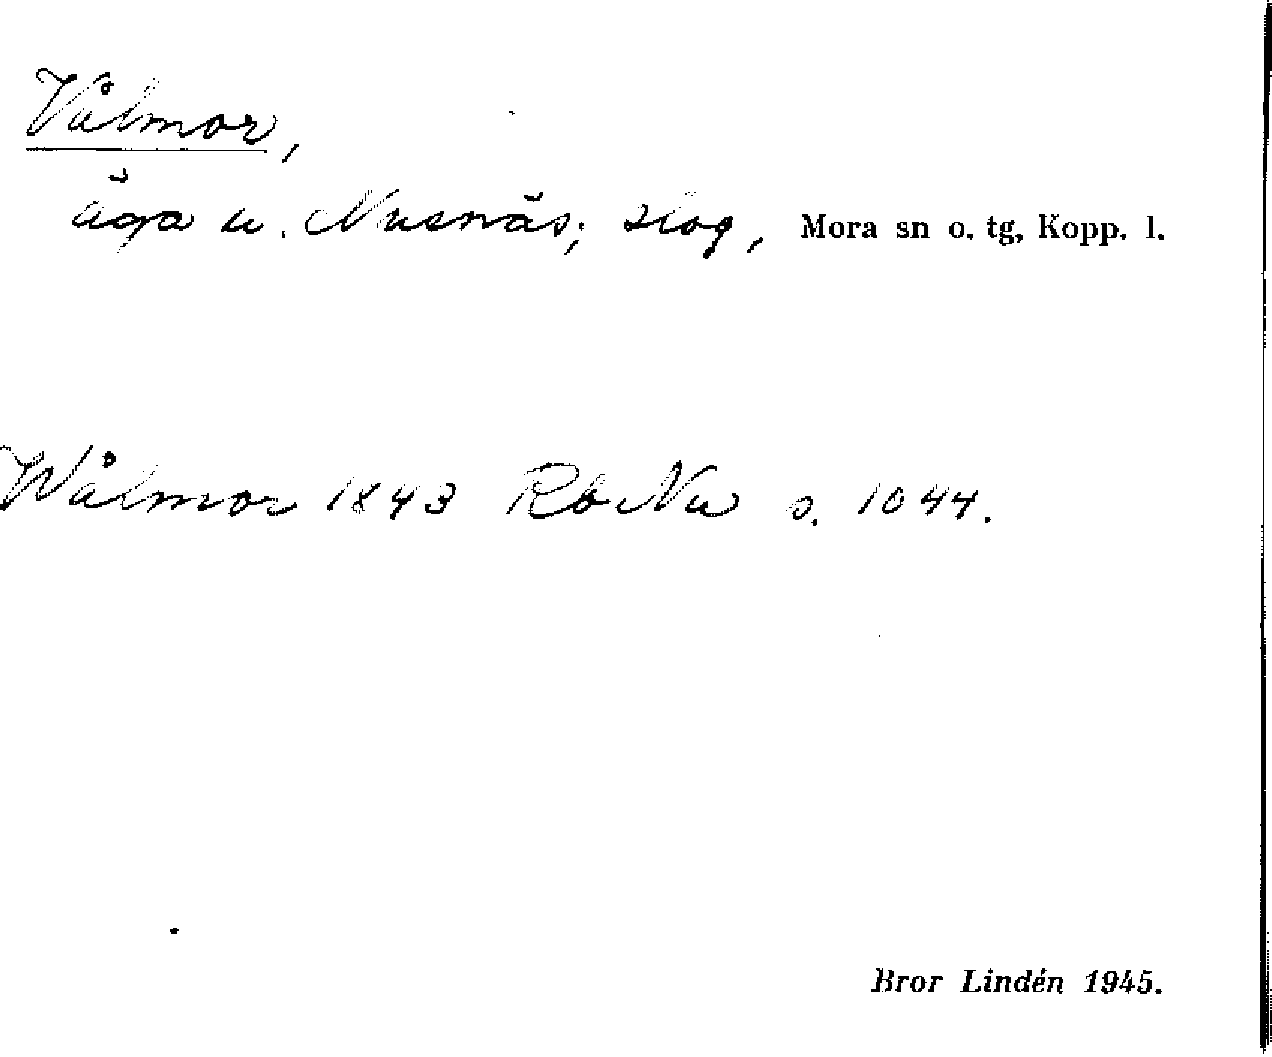 Vålmor,
äga u. Nusnäs; skog, Mora sn o. tg, Kopp. l.
Wålmor 1843 RbNu s. 1044.
Bror Lindén 1945.